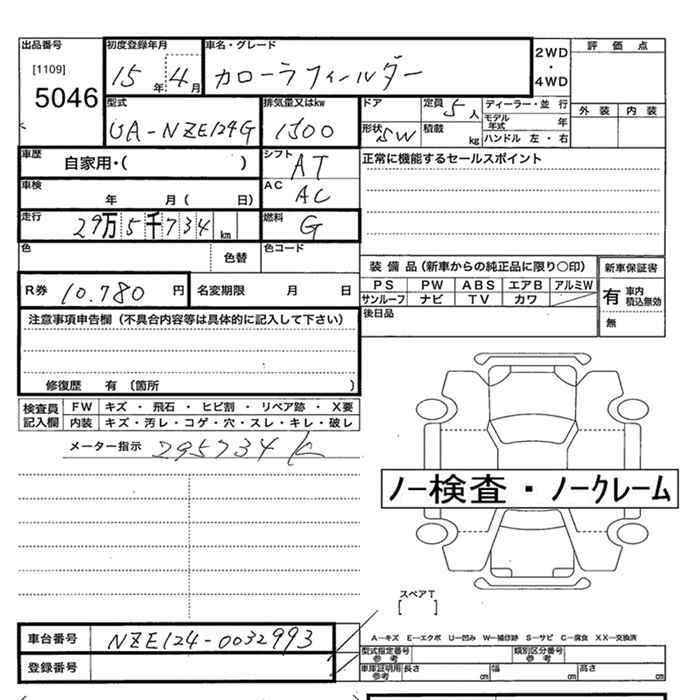 出品番号 初度登録年月 車名・グレード 2WD・4WD 評価点
[1109]
5046 15年 4月 カローラフィールダー
外装 内装
型式 排気量又はkw ドア 定員 5人 ディーラー・並行
UA-NZE124G 1500 形状 SW 積載 kg モデル年式 年
ハンドル 左・右
車歴 自家用・( ) シフト AT 正常に機能するセールスポイント
車検 年 月( 日) AC AC
走行 29万5千734km 燃料 G
色 色替 色コード
装備品(新車からの純正品に限り○印) 新車保証書
R券 10.780円 名変期限 月 日 PS PW ABS エアB アルミW 有 車内積込無効
サンルーフ ナビ TV カワ
注意事項申告欄(不具合内容等は具体的に記入して下さい) 後日品 無
修復歴 有〔箇所 〕
検査員記入欄 FW キズ・飛石・ヒビ割・リペア跡・X要
内装 キズ・汚レ・コゲ・穴・スレ・キレ・破レ
メーター指示 295734 k
ノー検査・ノークレーム
スペアT
[ ]
車台番号 NZE124-0032993 A―キズ E―エクボ U―凹み W―補修跡 S―サビ C―腐食 XX―交換済
型式指定番号 参考 類別区分番号 参考
登録番号 車庫証明用 参考 長さ cm 幅 cm 高さ cm